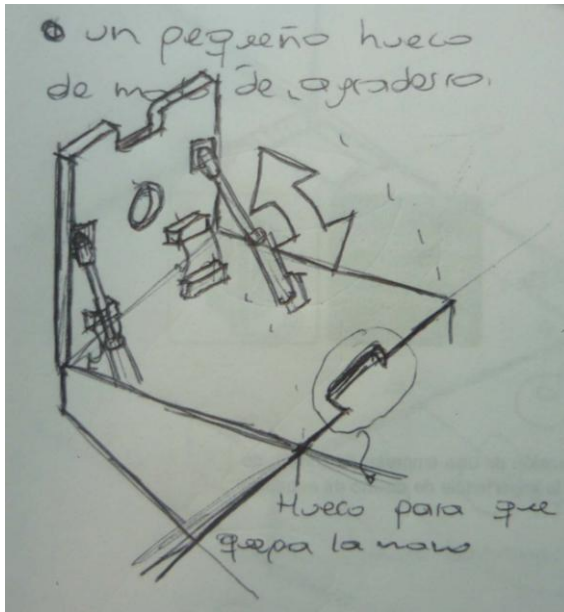 un pequeño hueco
de modo de
Hueco para que
quepa la mano